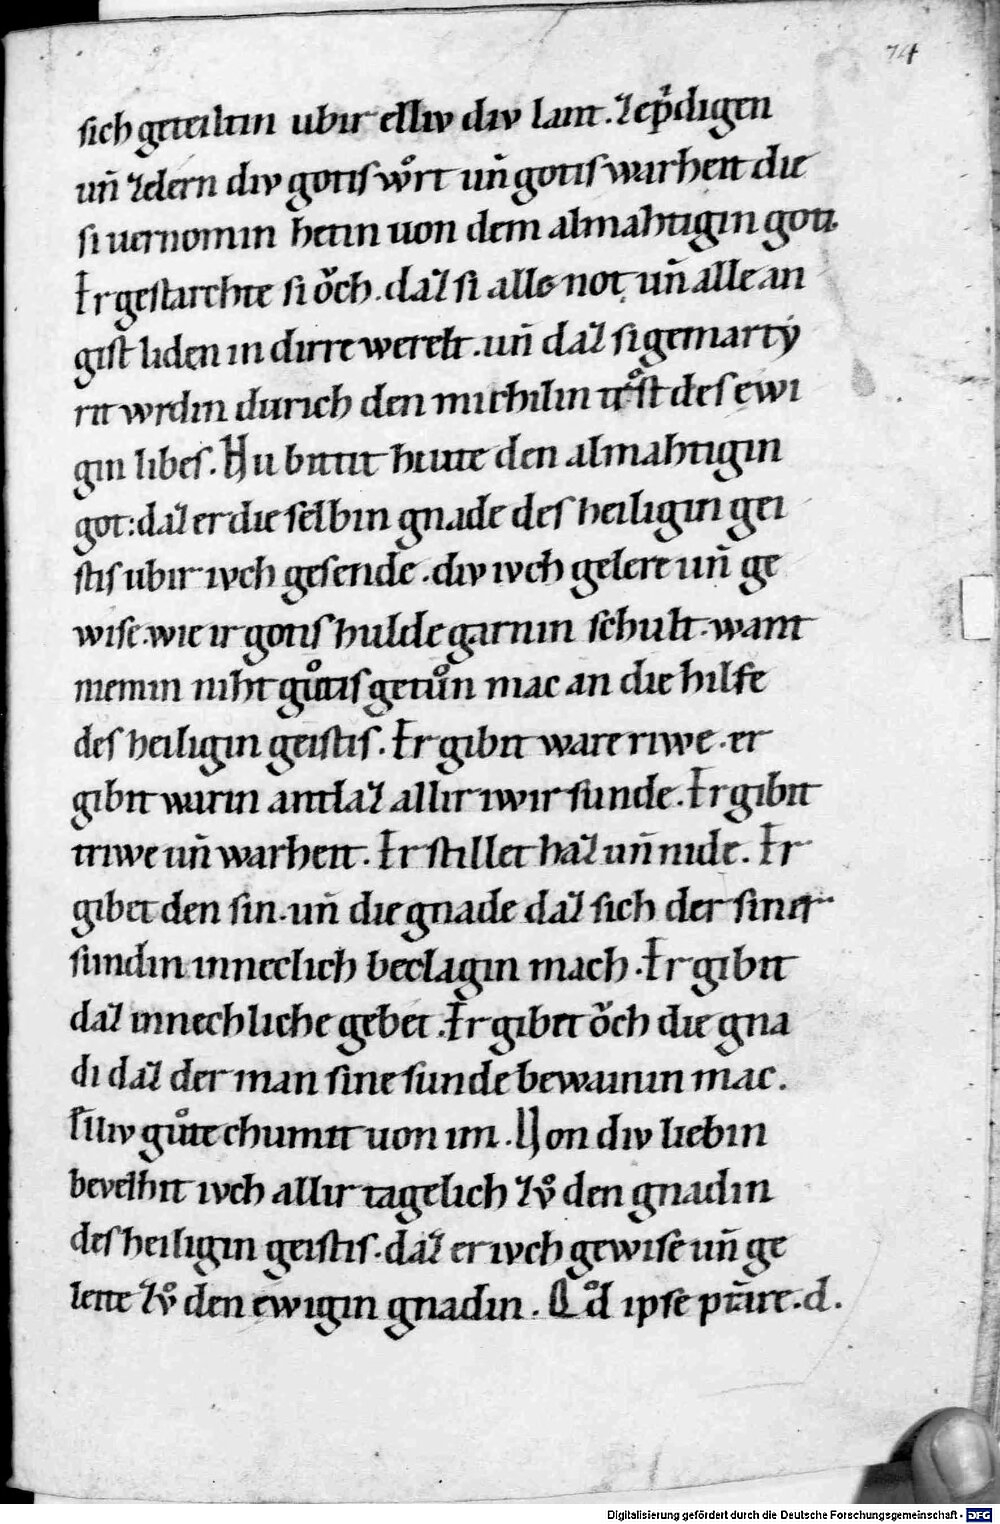 74
sich geteiltin ubir elliv div lant. zep̄digen
un̄ zelern div gotis wͦrt un̄ gotis warheit die
si uernomin hetin uon dem almahtigin goti.
Er gestarchte si oͮch. daz si alle not un̄ alle an
gist liden in dirre werelt. un̄ daz si gemarty
rit wrdin durich den michilin trͦst des ewi
gin libes. Nu bittit hiute den almahtigin
got: daz er die selbin gnade des heiligin gei
stis ubir ivch gesende. div ivch gelere un̄ ge
wise. wie ir gotis hulde garnin schult. want
niemin niht guͦtis getuͦn mac an die hilfe
des heiligin geistis. Er gibit ware riwe. er
gibit warin antlaz allir iwir sunde. Er gibit
triwe un̄ warheit. Er stillet haz un̄ nide. Er
gibet den sin. un̄ die gnade daz sich der siner
sundin inneclich beclagin mach. Er gibit
daz innechliche gebet. Er gibit oͮch die gna
di daz der man sine sunde bewainin mac.
elliv guͦte chumit uon im. Von div liebin
bevelhit ivch allir tagelich zvͦ den gnadin
des heiligin geistis. daz er ivch gewise un̄ ge
leite zvͦ den ewigin gnadin. Qͦd ipse p̄stare. d.
Digitalisierung gefördert durch die Deutsche Forschungsgemeinschaft - DFG